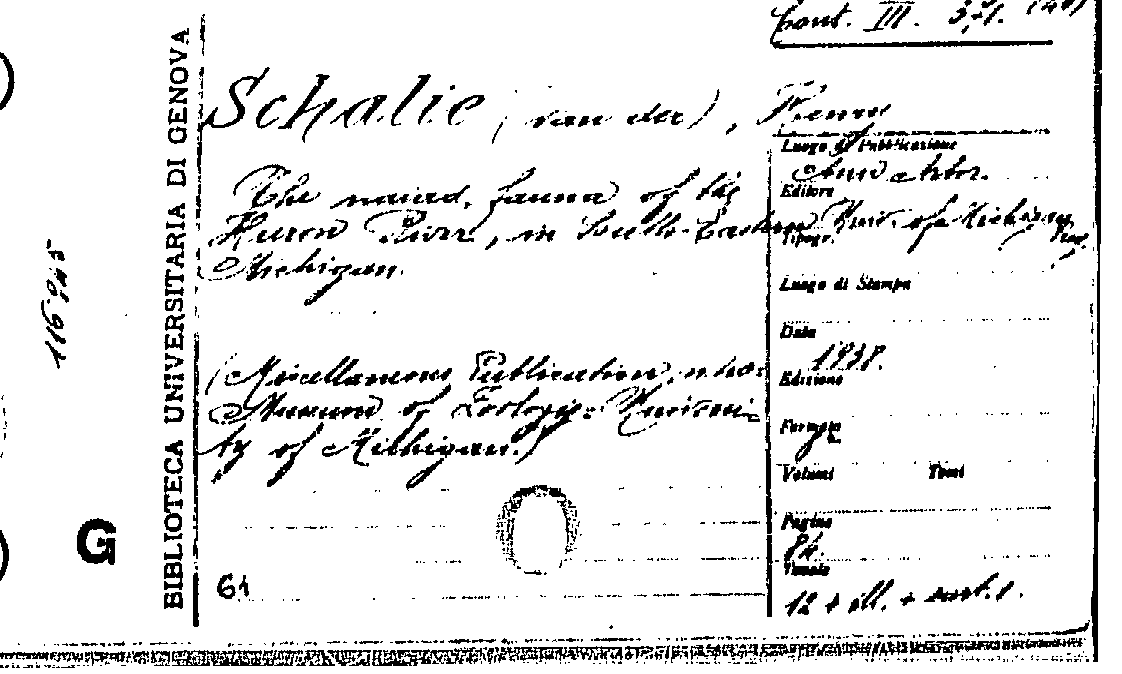 Cont. III. 371. (40)
Schalie (van der), Henry
The naiad fauna of the
Huron River, in South-Eastern
Michigan.
(Miscellaneous Publication, n. 40:
Museum of Zoology - Universi-
ty of Michigan.)
61
Luogo di Pubblicazione
Ann Arbor.
Editore
Univ. of Michigan
Press
Tipogr.
Luogo di Stampa
Data
1938.
Edizione
Formato
Volumi Tomi
Pagine
84.
Tavole
12 + ill. + cart. 1.
BIBLIOTECA UNIVERSITARIA DI GENOVA
116945
G